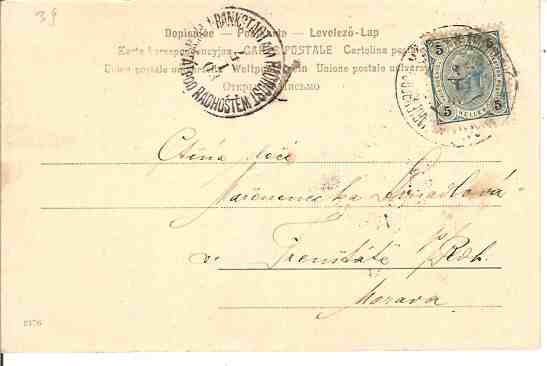 39
Dopisnice — Postkarte — Levelező-Lap
Karta korespondencyjna CARTE POSTALE Cartolina postale
Union postale universelle Weltpostverein Unione postale universale
Открытое письмо
FRANKSTADT AM RADHOST
POD RADHOŠTĚM
5 5
5 5
HELLER
Ctěná
Mařenenka
v Frenštátě p/Rdh.
Morava